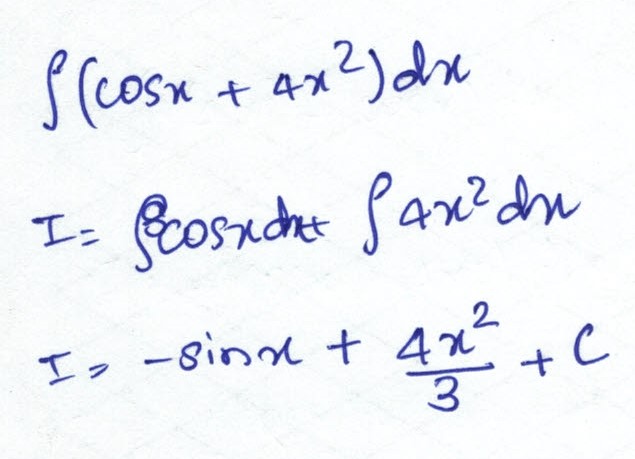 ∫(cosx + 4x²)dx
I = ∫cosxdx + ∫4x²dx
I = -sinx + 4x²/3 + C